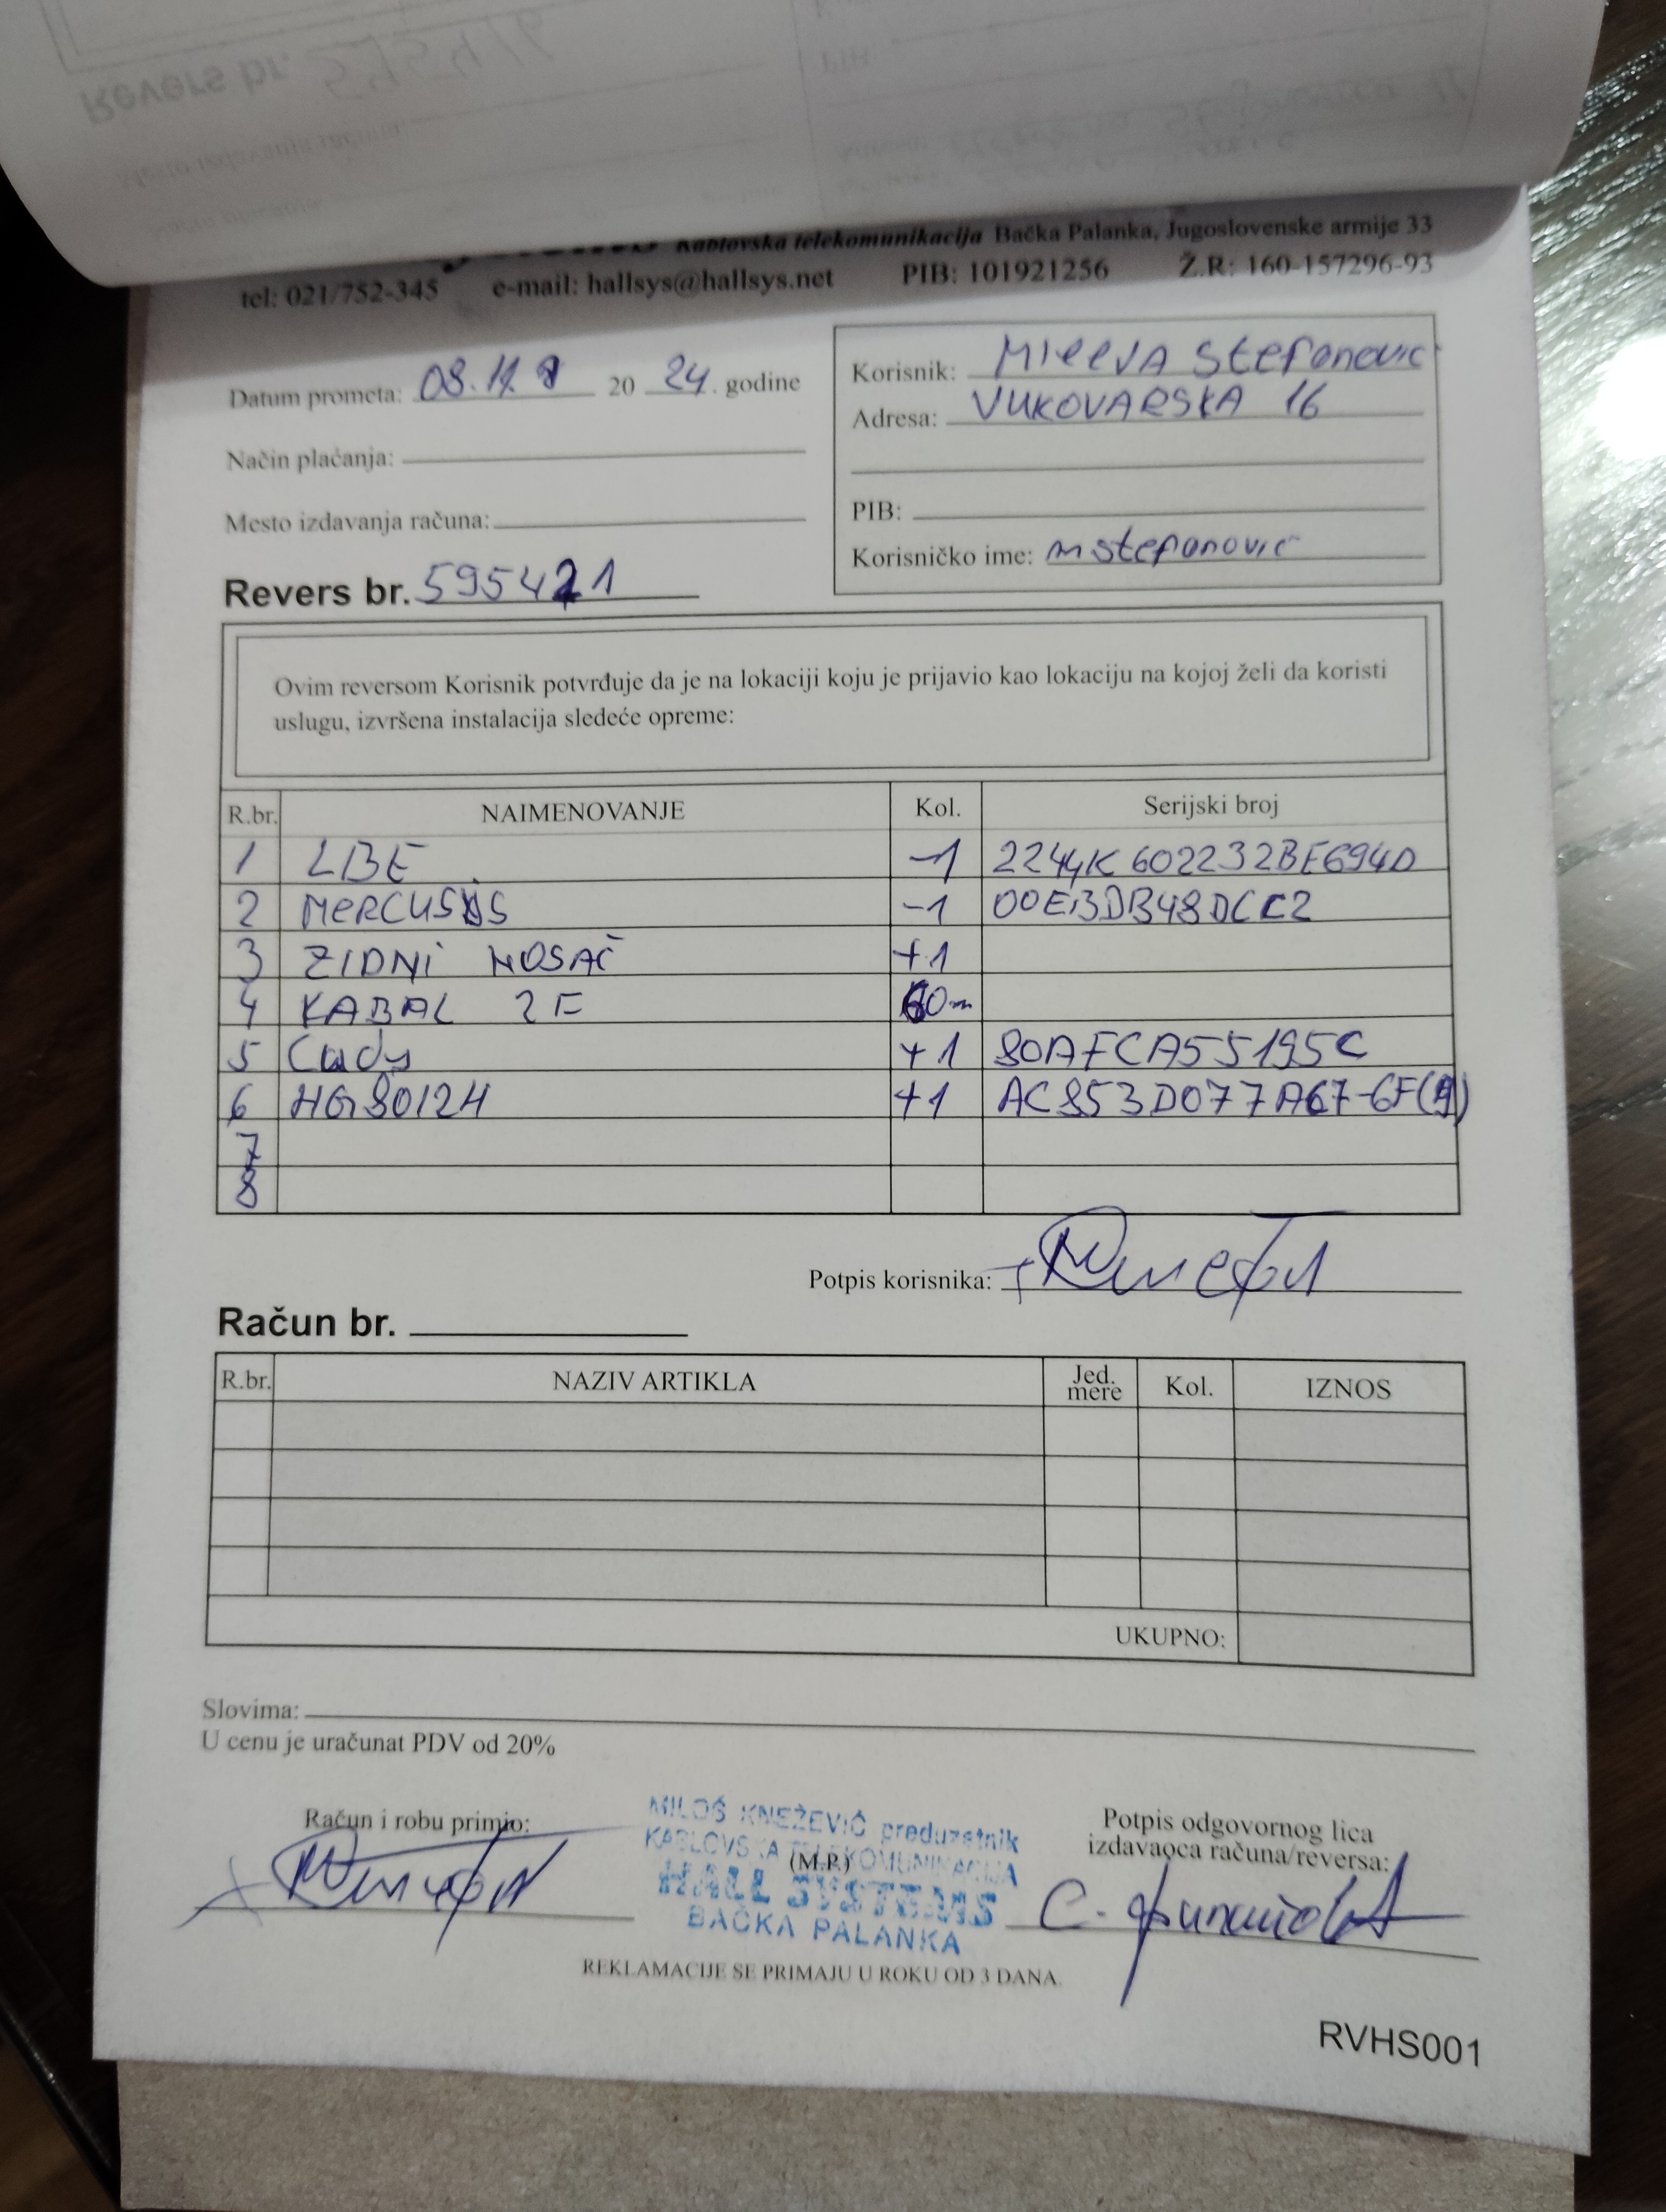 Kablovska telekomunikacija Bačka Palanka, Jugoslovenske armije 33
tel: 021/752-345 e-mail: hallsys@hallsys.net PIB: 101921256 Ž.R: 160-157296-93
Datum prometa: 08.11. 20 24. godine
Način plaćanja:
Mesto izdavanja računa:
Revers br. 595421
Korisnik: Stefanovic
Adresa: VUKOVARSKA 16
PIB:
Korisničko ime: mstefanovic
Ovim reversom Korisnik potvrđuje da je na lokaciji koju je prijavio kao lokaciju na kojoj želi da koristi
uslugu, izvršena instalacija sledeće opreme:
R.br. NAIMENOVANJE Kol. Serijski broj
1 LBE -1 2244K602232BE694D
2 MERCUSYS -1 00E3DB48DCC2
3 ZIDNI NOSAČ +1
4 KABAL 2F 60m
5 +1 80AFCA55195C
6 HG8012H +1 AC853D077A67-6F(9)
7
8
Potpis korisnika:
Račun br.
R.br. NAZIV ARTIKLA Jed. mere Kol. IZNOS
UKUPNO:
Slovima:
U cenu je uračunat PDV od 20%
Račun i robu primio:
MILOŠ KNEŽEVIĆ preduzetnik
KABLOVSKA TELEKOMUNIKACIJA
(M.P.)
HALL SYSTEMS
BAČKA PALANKA
Potpis odgovornog lica
izdavaoca računa/reversa:
REKLAMACIJE SE PRIMAJU U ROKU OD 3 DANA.
RVHS001